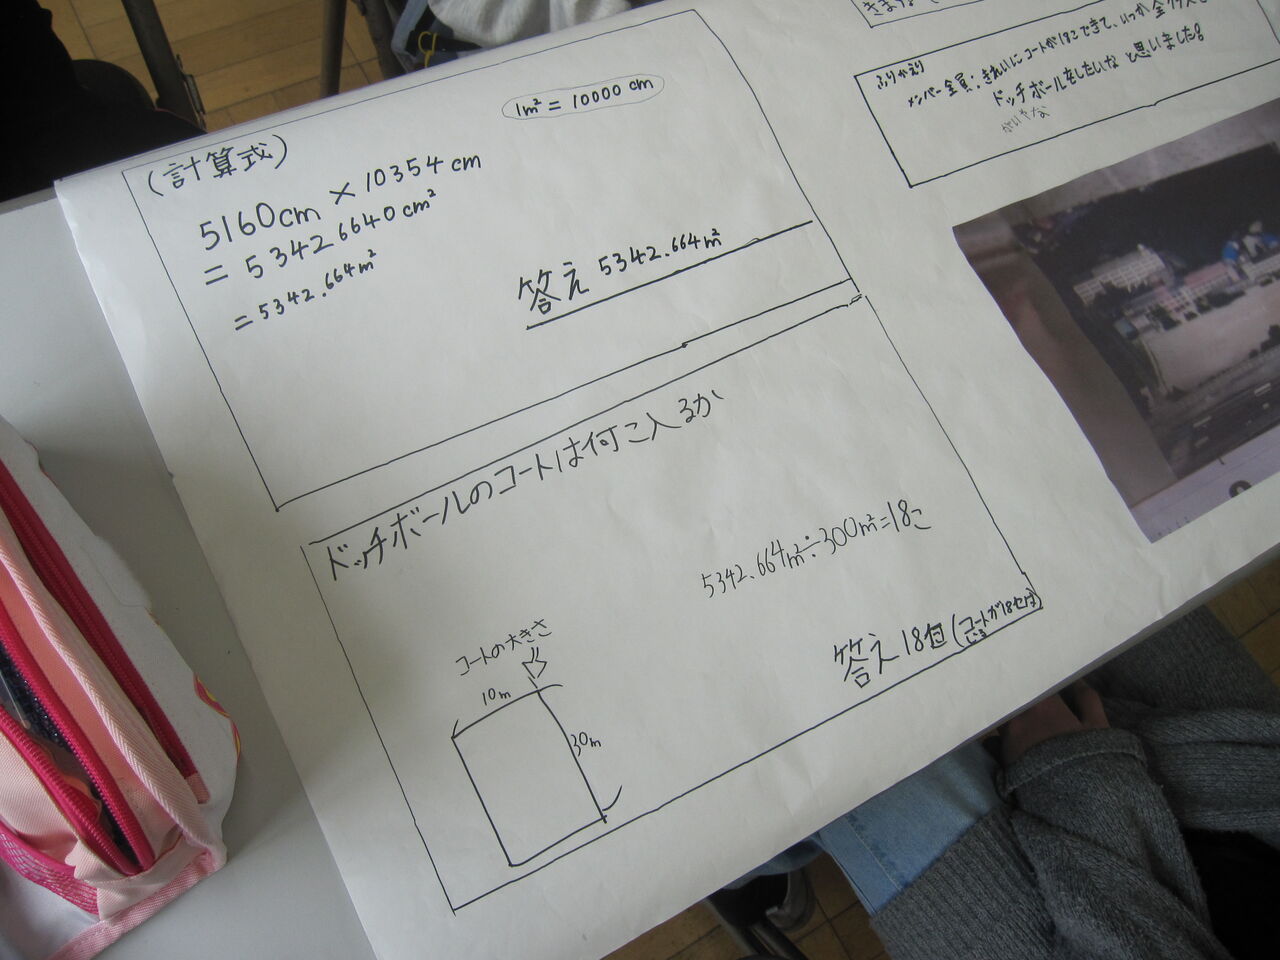 (計算式)
1m² = 10000 cm
5160cm × 10354 cm
= 53426640cm²
= 5342.664m²
答え 5342.664m²
ドッチボールのコートは何こ入るか
5342.664m²÷300m²=18こ
コートの大きさ
10m
30m
答え 18個
ふりかえり
メンバー全員:きれいにコートが18こできて、いつか全クラスで
ドッチボールをしたいなと思いました。